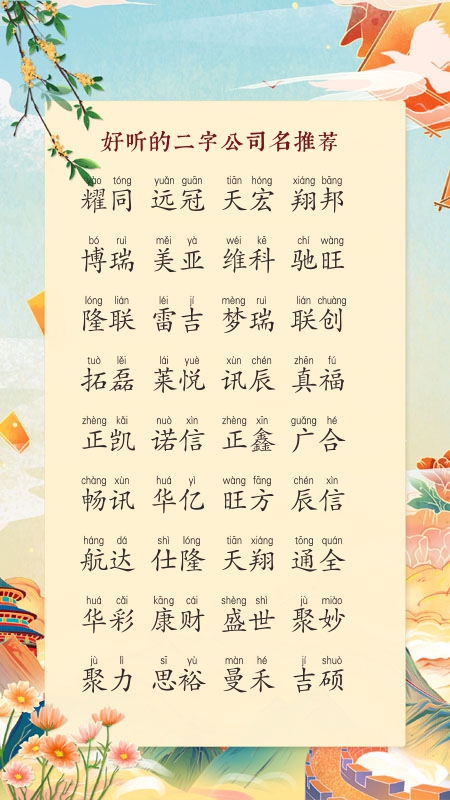 好听的二字公司名推荐
yào tóng yuǎn guān tiān hóng xiáng bāng
耀同 远冠 天宏 翔邦
bó ruì měi yà wéi kē chí wàng
博瑞 美亚 维科 驰旺
lóng lián léi jí mèng ruì lián chuàng
隆联 雷吉 梦瑞 联创
tuò lěi lái yuè xùn chén zhēn fú
拓磊 莱悦 讯辰 真福
zhèng kǎi nuò xìn zhèng xīn guǎng hé
正凯 诺信 正鑫 广合
chàng xùn huá yì wàng fāng chén xìn
畅讯 华亿 旺方 辰信
háng dá shì lóng tiān xiáng tōng quán
航达 仕隆 天翔 通全
huá cǎi kāng cái shèng shì jù miào
华彩 康财 盛世 聚妙
jù lì sī yù màn hé jí shuò
聚力 思裕 曼禾 吉硕